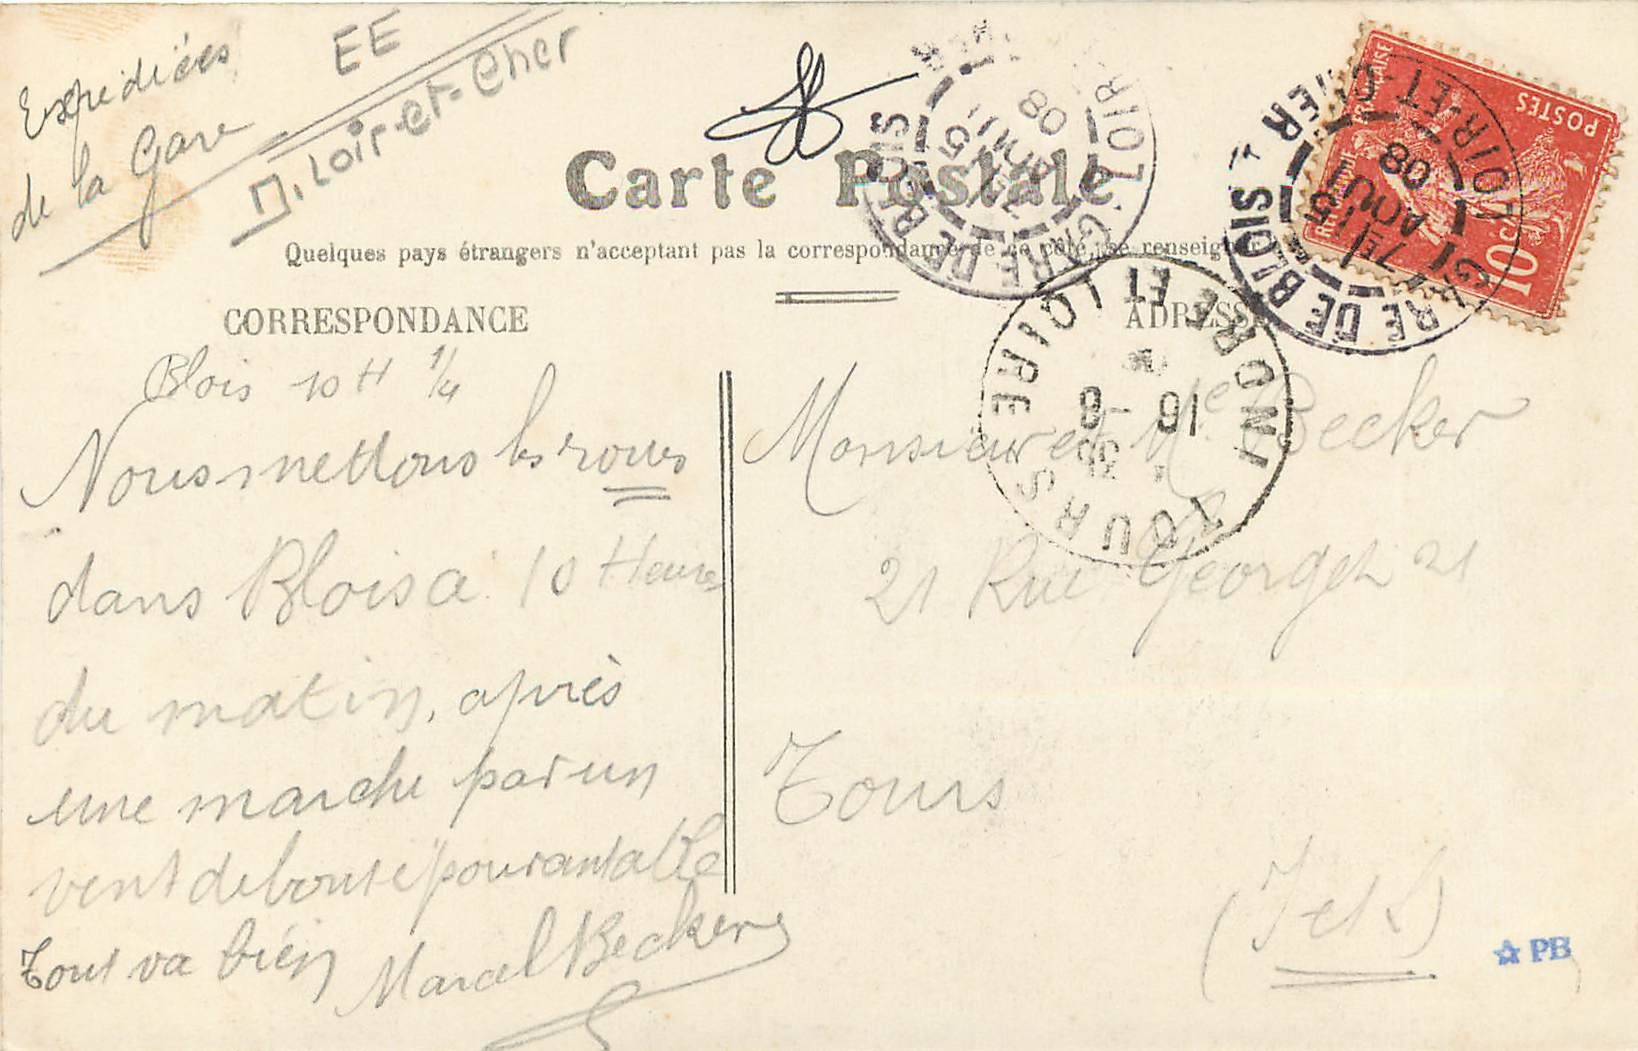 Expédiées
de la Gare
EE
D. Loir-et-Cher
Carte Postale
Quelques pays étrangers n'acceptant pas la correspondance de ce côté, se renseig
CORRESPONDANCE
ADRESSE
Blois 10 H 1/4
Nous mettons les roues
dans Blois a 10 Heures
du matin, après
une marche par un
vent debout
Tout va bien Marcel Becker
Monsieur et Me Becker
21 Rue Georget 21
Tours
(I et L)
GARE DE BLOIS
LOIR-ET-CHER
7E/15
AOUT
08
GARE DE BLOIS
LOIR-ET-CHER
7E/15
AOUT
08
TOURS
INDRE ET LOIRE
16 -8
POSTES
10c
PB